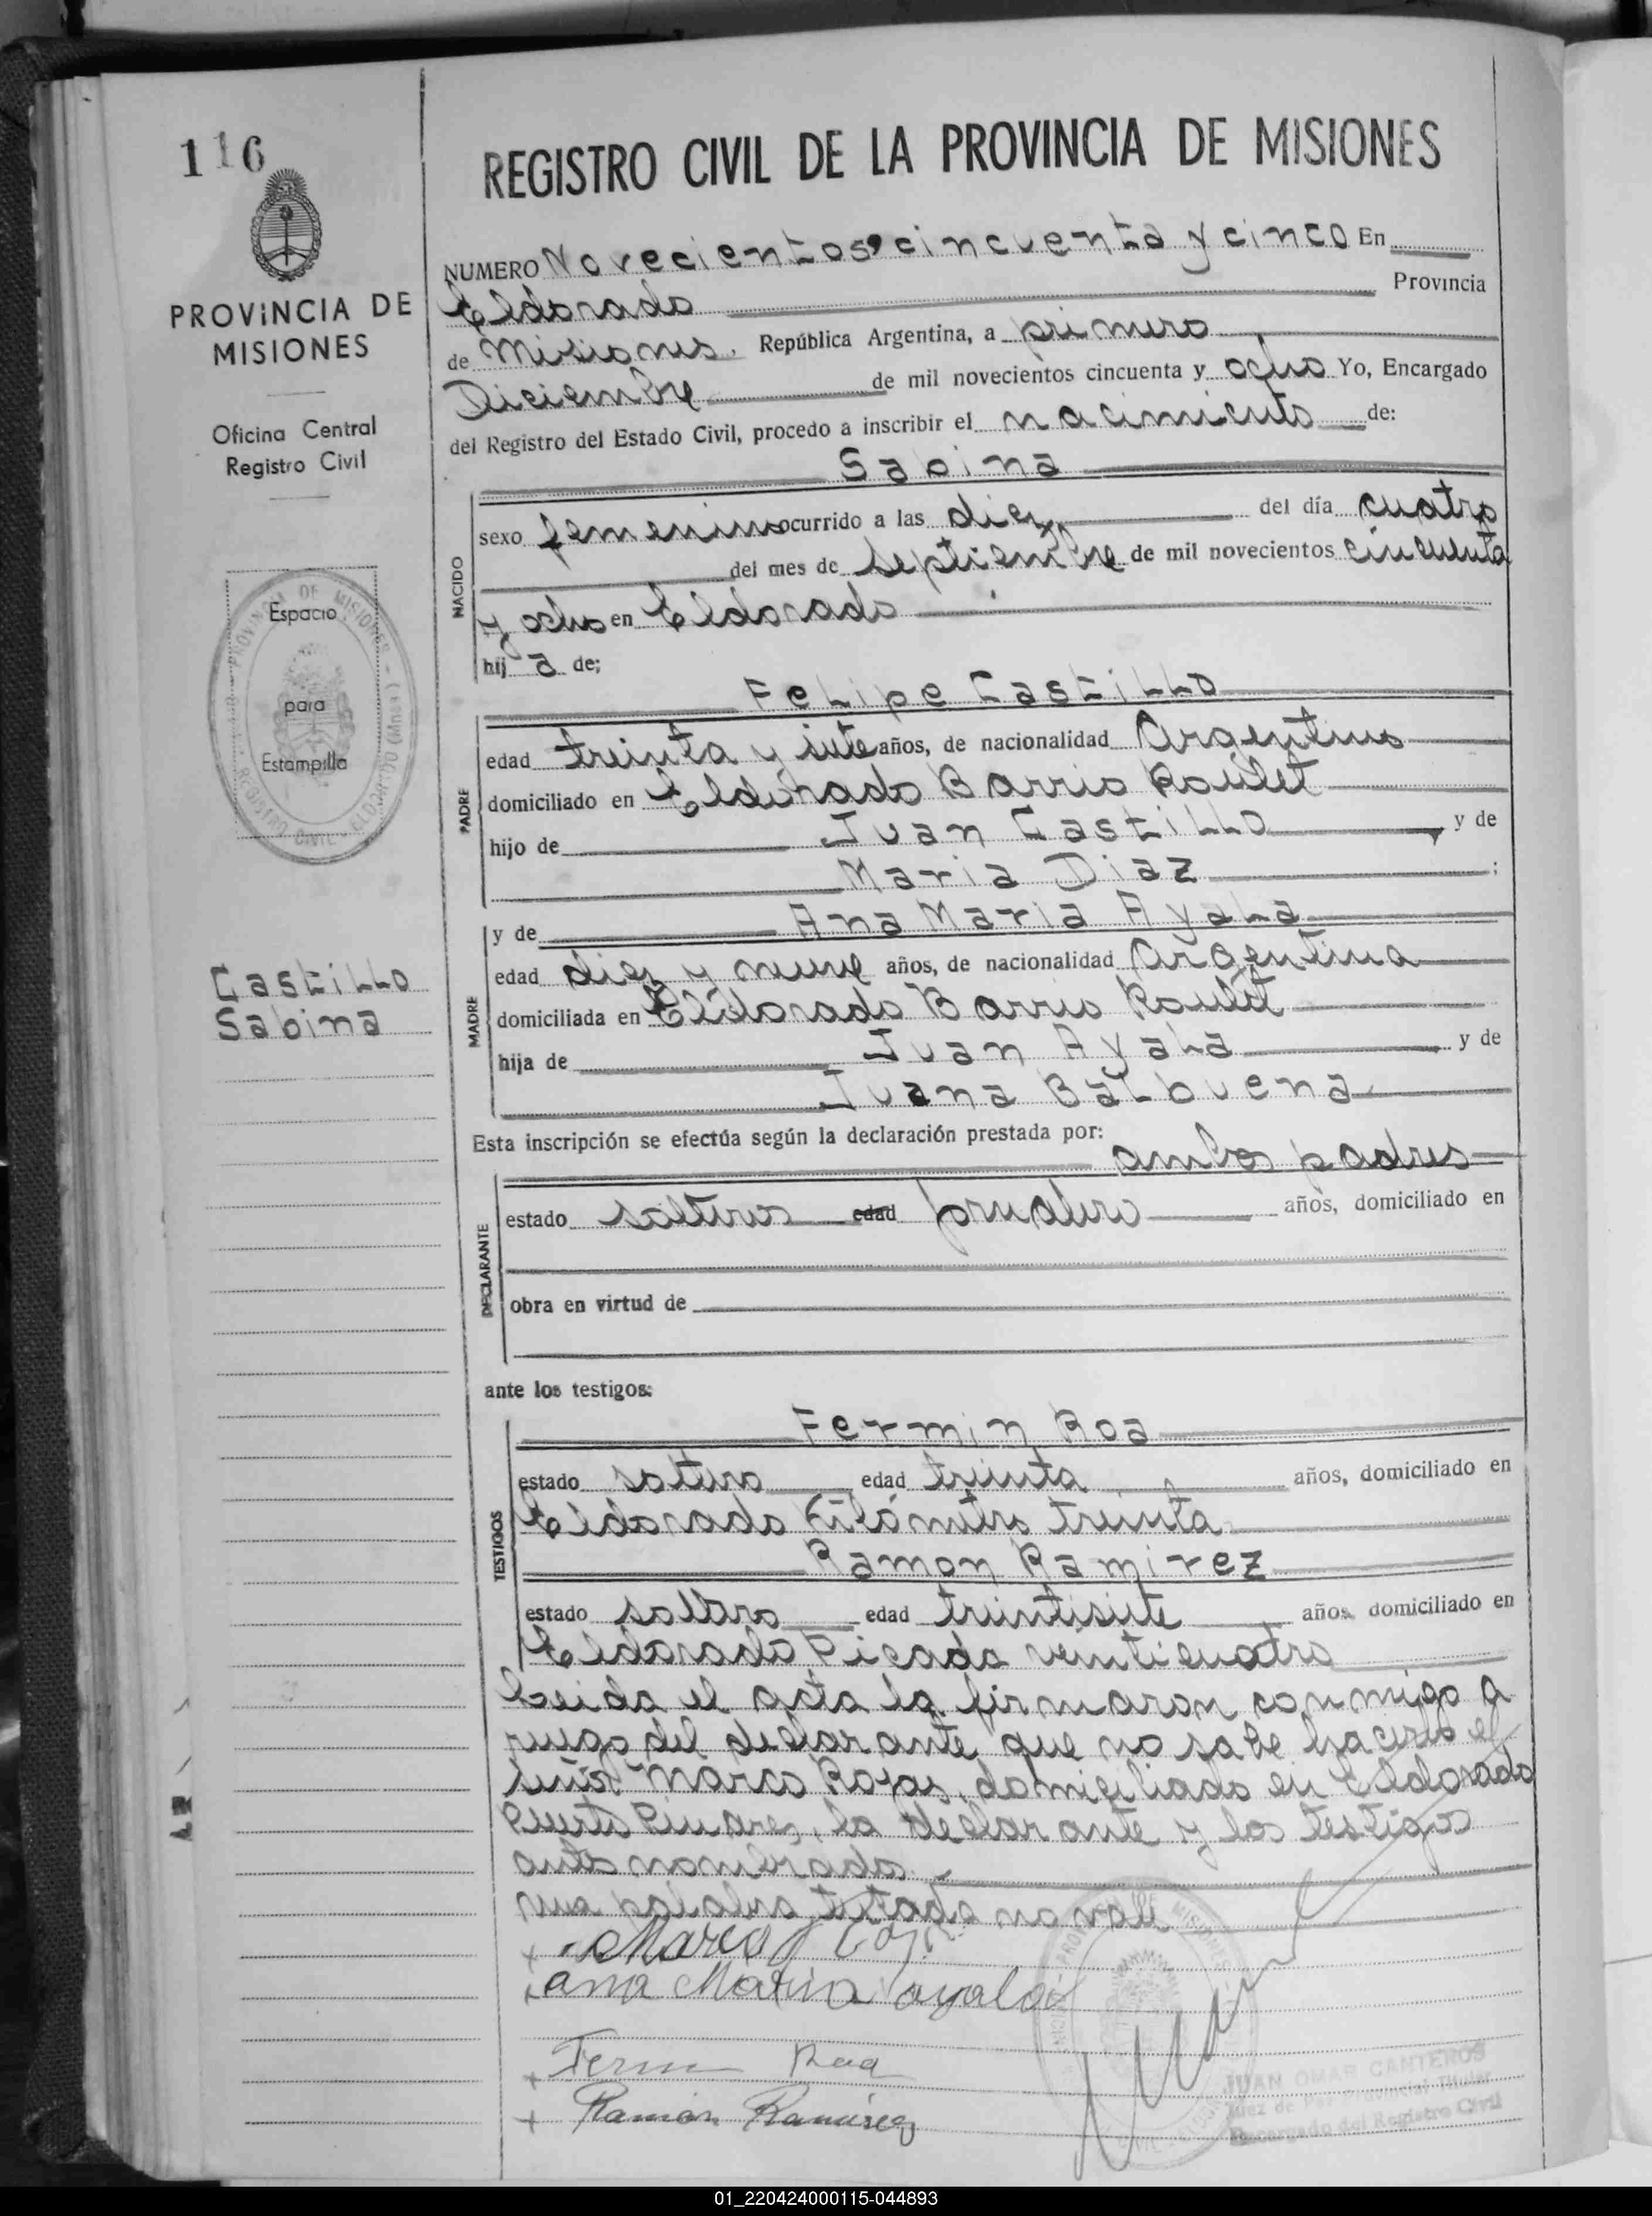 116
REGISTRO CIVIL DE LA PROVINCIA DE MISIONES
PROVINCIA DE
MISIONES
Oficina Central
Registro Civil
Espacio
para
Estampilla
Castillo
Sabina
NUMERO Novecientos cincuenta y cinco En
Eldorado Provincia
de Misiones. República Argentina, a primero
Diciembre de mil novecientos cincuenta y ocho Yo, Encargado
del Registro del Estado Civil, procedo a inscribir el nacimiento de:
Sabina
NACIDO
sexo femenino ocurrido a las diez del día cuatro
del mes de septiembre de mil novecientos cincuenta
y ocho en Eldorado
hij a de;
Felipe Castillo
PADRE
edad treinta y siete años, de nacionalidad Argentino
domiciliado en Eldorado Barrio Roulet
hijo de Juan Castillo y de
Maria Diaz ;
MADRE
y de Ana Maria Ayala
edad diez y nueve años, de nacionalidad Argentina
domiciliada en Eldorado Barrio Roulet
hija de Juan Ayala y de
Juana Balbuena
Esta inscripción se efectúa según la declaración prestada por:
ambos padres
DECLARANTE
estado solteros edad años, domiciliado en
obra en virtud de
ante los testigos:
TESTIGOS
Fermin Roa
estado soltero edad treinta años, domiciliado en
Eldorado Kilómetro treinta
Ramon Ramirez
estado soltero edad treintisiete años, domiciliado en
Eldorado Picada veinticuatro
Leida el acta la firmaron conmigo a
ruego del declarante que no sabe hacerlo el
señor Marco Rojas, domiciliado en Eldorado
Puerto Pinares, la declarante y los testigos
antes nombrados.-
una palabra testada no vale
Marco
ana Maria ayala
Fermin Roa
Ramón Ramirez
JUAN OMAR CANTEROS
Juez de Paz Provincial Titular
Encargado del Registro Civil
01_220424000115-044893